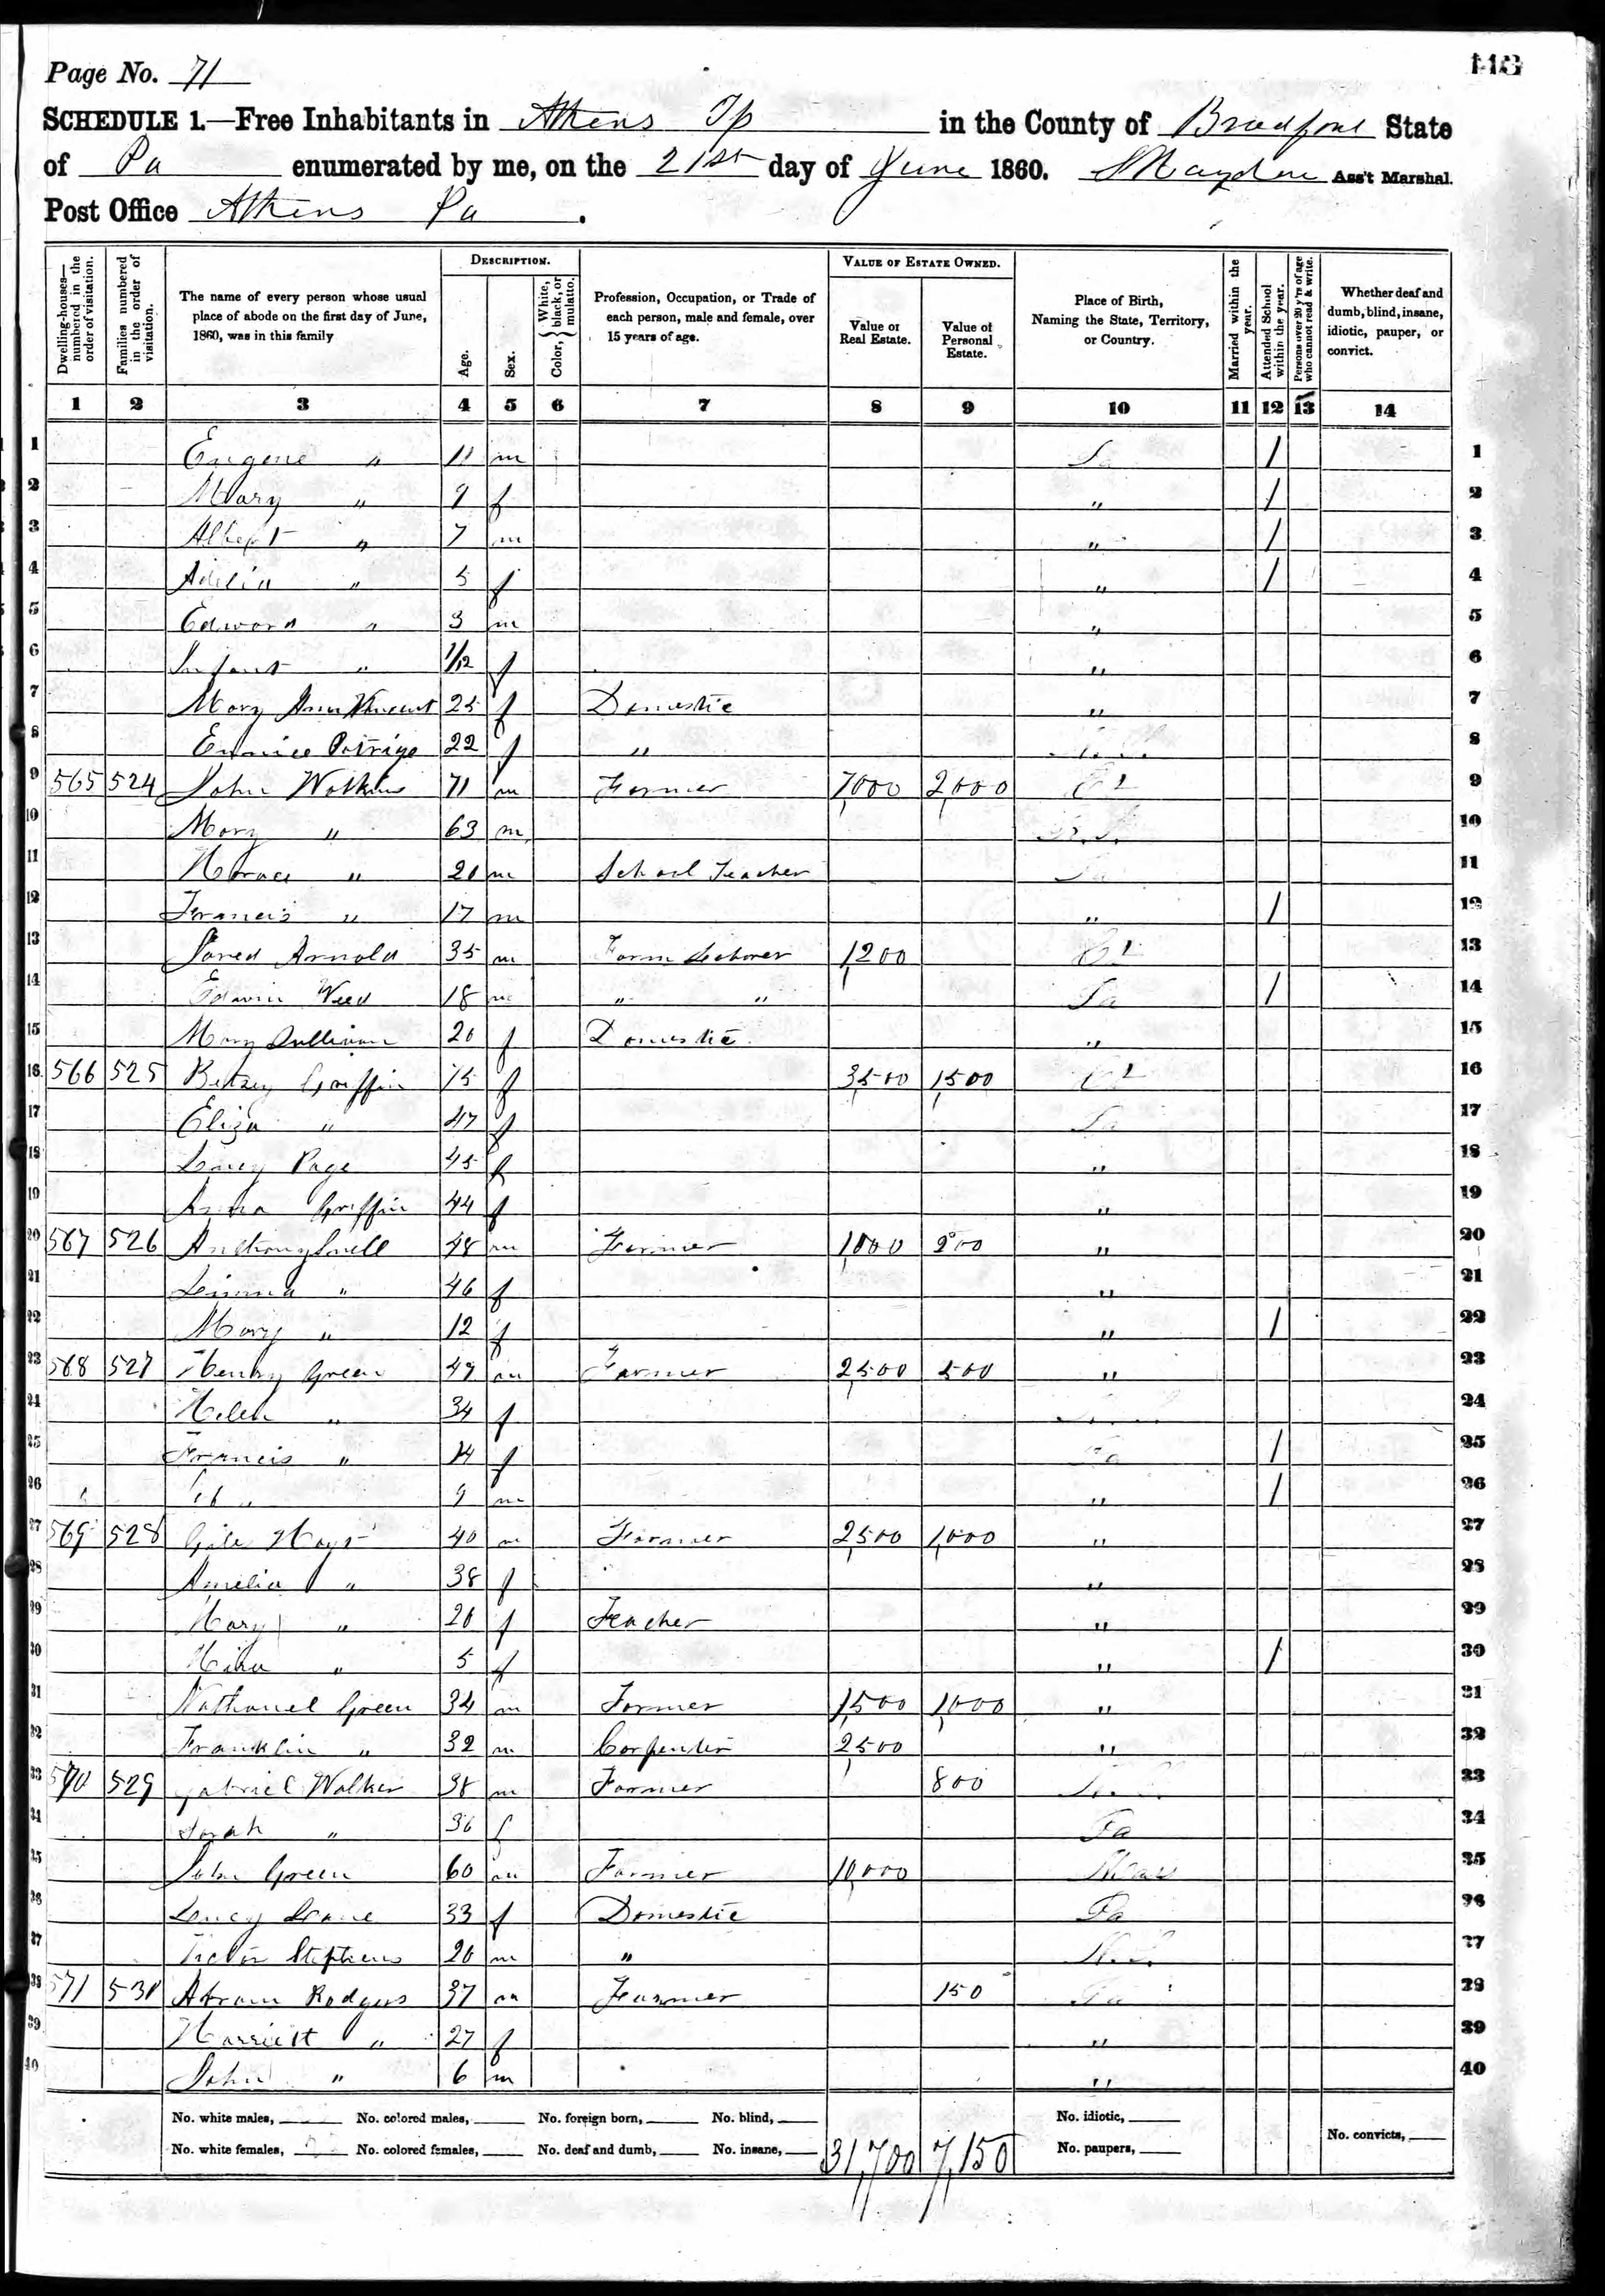 Page No. 71
113
SCHEDULE 1.—Free Inhabitants in Athens Tp in the County of Bradford State
of Pa enumerated by me, on the 21st day of June 1860. Ass't Marshal.
Post Office Athens Pa.
Dwelling-houses—numbered in the order of visitation.
Families numbered in the order of visitation.
The name of every person whose usual place of abode on the first day of June, 1860, was in this family
DESCRIPTION.
Age.
Sex.
Color, { White, black, or mulatto.
Profession, Occupation, or Trade of each person, male and female, over 15 years of age.
VALUE OF ESTATE OWNED.
Value of Real Estate.
Value of Personal Estate.
Place of Birth, Naming the State, Territory, or Country.
Married within the year.
Attended School within the year.
Persons over 20 y'rs of age who cannot read & write.
Whether deaf and dumb, blind, insane, idiotic, pauper, or convict.
1 2 3 4 5 6 7 8 9 10 11 12 13 14
1 Eugene " 11 m Pa / 1
2 Mary " 9 f " / 2
3 Albert " 7 m " / 3
4 Adelia " 5 f " / 4
5 Edward " 3 m " 5
6 Infant " 1/12 f " 6
7 Mary Ann Vincent 25 f Domestic " 7
8 Eunice 22 f " 8
9 565 524 John Watkins 71 m Farmer 7000 2000 Ct 9
10 Mary " 63 m 10
11 Horace " 20 m School Teacher Pa 11
12 Francis " 17 m " / 12
13 Jared Arnold 35 m Farm Laborer 1200 Ct 13
14 Edwin Weed 18 m " " Pa / 14
15 Mary Sullivan 20 f Domestic " 15
16 566 525 Betsey Griffin 75 f 3500 1500 Ct 16
17 Eliza " 47 f Pa 17
18 Page 45 f " 18
19 Anna Griffin 44 f " 19
20 567 526 Anthony Snell 48 m Farmer 1000 200 " 20
21 " 46 f " 21
22 Mary " 12 f " / 22
23 568 527 Henry Green 49 m Farmer 2500 500 " 23
24 Helen " 34 f 24
25 Francis " 14 f Pa / 25
26 " 9 m " / 26
27 569 528 40 m Farmer 2500 1000 " 27
28 Amelia " 38 f " 28
29 Mary " 20 f Teacher " 29
30 " 5 f " / 30
31 Nathaniel Green 34 m Farmer 1500 1000 " 31
32 Franklin " 32 m Carpenter 2500 " 32
33 570 529 Gabriel Walker 38 m Farmer 800 33
34 Sarah " 36 f Pa 34
35 John Green 60 m Farmer 10000 Mass 35
36 Lucy Drane 33 f Domestic Pa 36
37 Victor Stephens 20 m " 37
38 571 530 Abram Rodgers 37 m Farmer 150 Pa 38
39 Harriett " 27 f " 39
40 John " 6 m " 40
No. white males, No. colored males, No. foreign born, No. blind, No. idiotic,
No. white females, No. colored females, No. deaf and dumb, No. insane, 31,700 7,150 No. paupers, No. convicts,